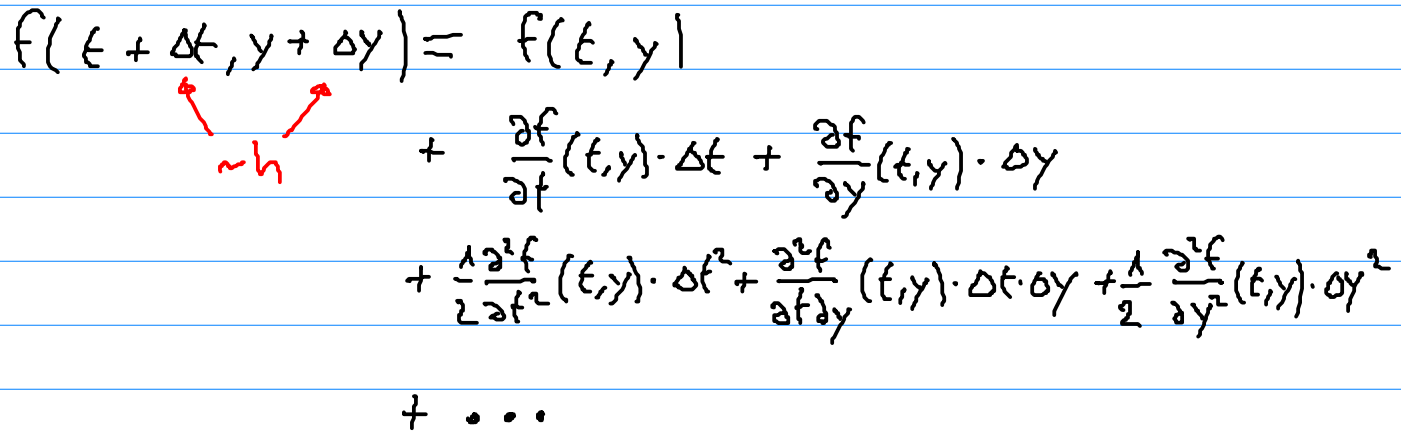 f(t + Δt, y + Δy) = f(t, y)
~h
+ ∂f/∂t (t,y)·Δt + ∂f/∂y (t,y)·Δy
+ 1/2 ∂²f/∂t² (t,y)·Δt² + ∂²f/∂t∂y (t,y)·Δt·Δy + 1/2 ∂²f/∂y² (t,y)·Δy²
+ ...